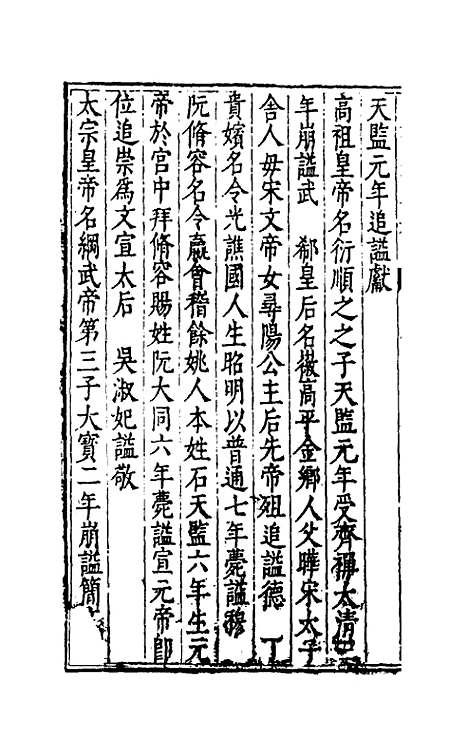 天監元年追謚獻
高祖皇帝名衍順之之子天監元年受齊禪太清
年崩謚武　郗皇后名徽高平金鄉人父曄宋太子
舍人毋宋文帝女尋陽公主后先帝殂追謚德　丁
貴嬪名令光譙國人生昭明以普通七年薨謚穆
阮脩容名令嬴會稽餘姚人本姓石天監六年生元
帝於宮中拜脩容賜姓阮大同六年薨謚宣元帝卽
位追崇爲文宣太后　吳淑妃謚敬
太宗皇帝名綱武帝第三子大寶二年崩謚簡